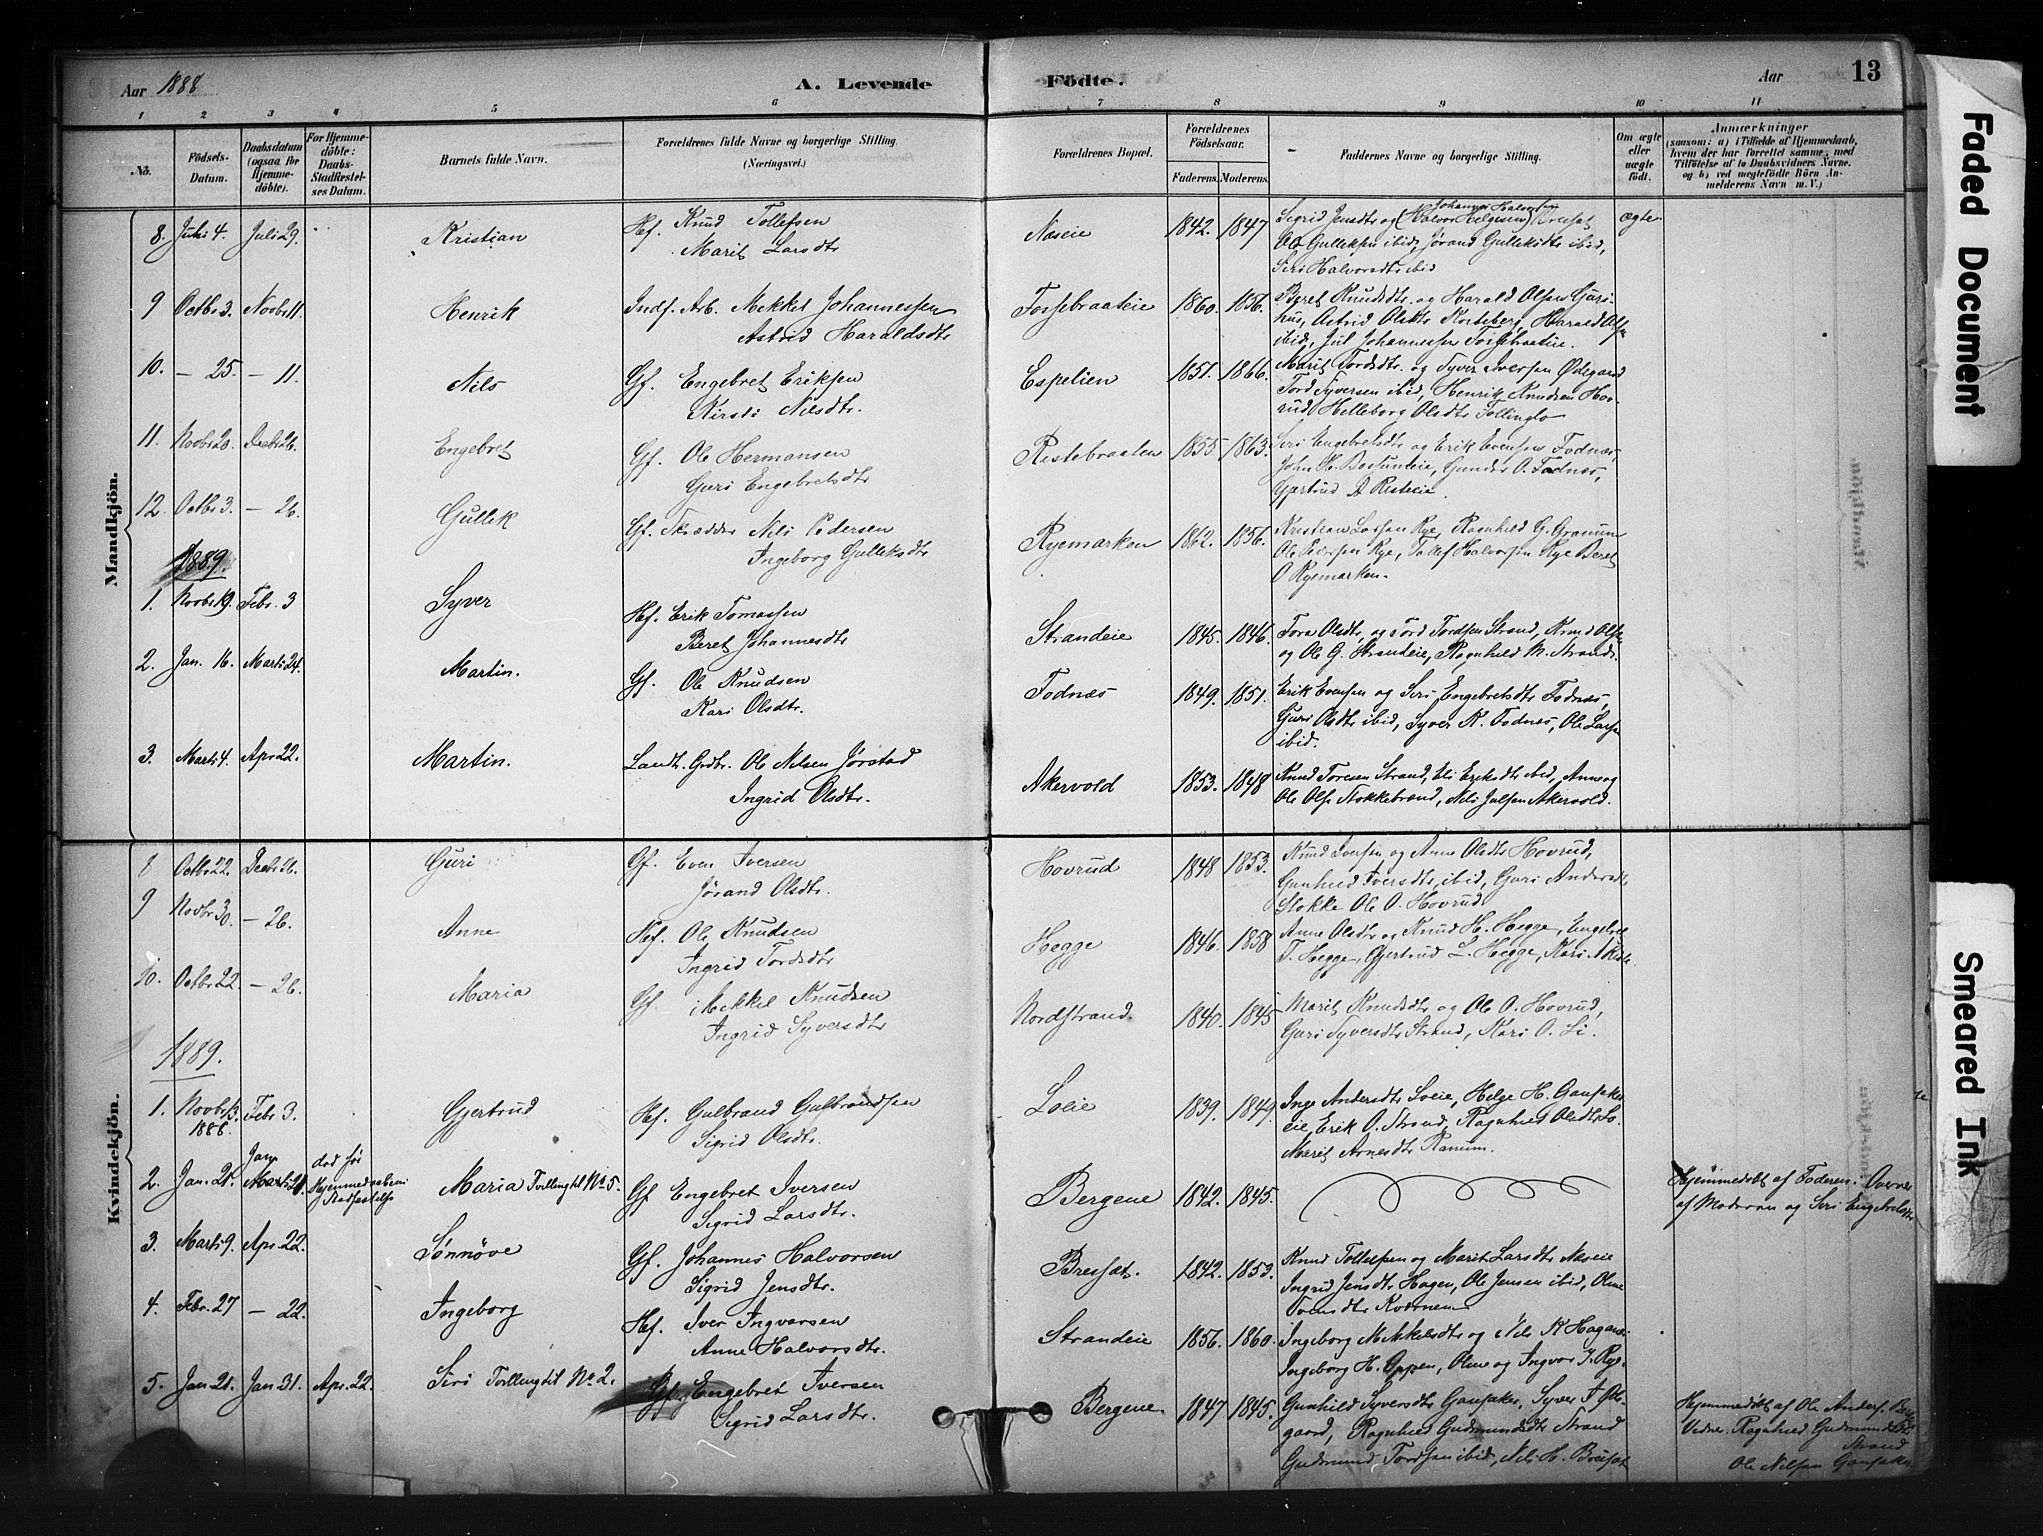 Aar 1888
A. Levende Födte.
Aar
13
1 2 3 4 5 6 7 8 9 10 11
No.
Födsels-Datum.
Daabsdatum (ogsaa for Hjemmedöbte).
For Hjemmedöbte: Daabs-Stadfæstelses Datum.
Barnets fulde Navn.
Forældrenes fulde Navne og borgerlige Stilling. (Næringsvei.)
Forældrenes Bopæl.
Forældrenes Födselsaar.
Faderens. Moderens.
Faddernes Navne og borgerlige Stilling.
Om ægte eller uægte födt.
Anmærkninger
(saasom: a) i Tilfælde af Hjemmedaab, hvem der har forrettet samme, med Tilföielse af to Daabsvidners Navne. og b) ved uægtefödte Börn Anmelderens Navn m. V.)
Mandkjön.
8. Juli 4. Juli 29. Kristian Hf. Knud Tollefsen Næseie 1842. 1847 Sigrid Jensdtr og (Halvor Helgesen) Johannes Halvorsen ægte
Marit Larsdtr Ole Gulleksen ibid, Jørand Gulleksdtr ibid,
Siri Halvorsdtr ibid
9 Octbr 3. Novbr 11. Henrik Indf. Arb. Mekkel Johannessen 1860. 1856. Beret Knudsdtr. og Harald Olsen
Astrid Haraldsdtr Astrid Olsdtr
ibid, Jul Johannessen
10. — 25. — 11. Nils Gf. Engebret Eriksen Espelien 1851. 1866. Marit Tordsdtr. og Syver Iversen Ødegaard
Nilsdtr. Tord Syversen ibid, Henrik Knudsen Hovrud,
Helleborg Olsdtr
11. Novbr 20. Decbr 26. Engebret Gf. Ole Hermansen Ristebraaten 1855. 1863. Siri Engebretsdtr og Erik Evensen Fodnæs,
Guri Engebretsdtr Gunder O. Fodnæs,
Gjertrud
12. Octbr 3. — 26. Gullik Gf. Skrædder Nils Pedersen Ryemarken 1862. 1856. Kristian Larsen Rye, Ragnhild G.
Ingeborg Gulleksdtr Ole Pedersen Rye, Tollef Halvorsen Rye Beret
O Ryemarken.
1889.
1. Novbr 19. Febr. 3 Syver Hf. Erik Tomassen Strandeie 1845. 1846. Tora Olsdtr, og Tord Tordsen Strand, Knud Olsen
Beret Johannesdtr og Ole G. Strandeie, Ragnhild M. Strand.
2. Jan. 16. Marts 24. Martin. Gf. Ole Knudsen Fodnæs 1849. 1851. Erik Evensen og Siri Engebretsdtr Fodnæs,
Kari Olsdtr. Guri Olsdtr ibid, Syver K. Fodnæs, Ole Larsen
ibid.
3. Marts 4. Apr. 22. Martin. Landh. Grdbr. Ole Nilsen Jørstad Akervold 1853. 1848 Knud Toresen Strand, Eli Eriksdtr ibid, Anne og
Ingrid Olsdtr. Ole Olsen Stokkebrænd, Nils Julsen Akervold.
Kvindekjön.
8 Octbr 22. Decbr 26. Guri Gf. Even Iversen Hovrud 1848 1853. Knud Iversen og Anne Olsdtr Hovrud,
Jørand Olsdtr. Gunhild Iversdtr ibid, Guri Andersdtr
Stokke Ole O. Hovrud
9 Novbr 30. — 26. Anne Hf. Ole Knudsen Hegge 1846. 1858 Anne Olsdtr og Knud H. Hegge, Engebret
Ingrid Tordsdtr T. Hegge, Gjertrud L. Hegge, Kari
10. Octbr 22. — 26. Maria Gf. Mekkel Knudsen Nordstrand. 1840. 1845 Marit Knudsdtr og Ole O. Hovrud,
Ingrid Syversdtr Guri Syversdtr Strand, Kari O. Li.
1889.
1. Novbr 13. 1888. Febr 3. Gjertrud Hf. Gulbrand Gulbrandsen Loeie 1839. 1849. Inge Andersdtr Loeie, Helge H.
Sigrid Olsdtr. Erik O. Strand, Ragnhild Olsdtr Lo
Marit Arnesdtr Ranum.
2. Jan. 21. Jan. 21. død før Hjemmedaabens Stadfæstelse Maria Tvilling til No 5. Gf. Engebret Iversen Bergene 1842. 1845. Hjemmedøbt af Faderen.
Sigrid Larsdtr. af Moderen og Siri Engebretsdtr
3. Marts 9. Apr. 22. Sønnøve Gf. Johannes Halvorsen 1842. 1853. Knud Tollefsen og Marit Larsdtr Næseie
Sigrid Jensdtr. Ingrid Jensdtr Hagen, Ole Jensen ibid, Oline
4. Febr. 27 — 22. Ingeborg Hf. Iver Ingvarsen Strandeie 1856. 1860. Ingeborg Mekkelsdtr og Nils K
Anne Halvorsdtr. Ingeborg H. Oppen, Oline og Ingvar
5. Jan. 21. Jan 31. Apr. 22. Siri Tvilling til No 2. Gf. Engebret Iversen Bergene 1847 1845. Gunhild Syversdtr Syver Hjemmedøbt af Ole Anders.
Sigrid Larsdtr. Ragnhild Gudmundsdtr Strand Vidner. Ragnhild Gudmundsdtr
Gudmund Tordsen ibid, Nils H. Strand
Ole Nilsen
Faded Document
Smeared Ink